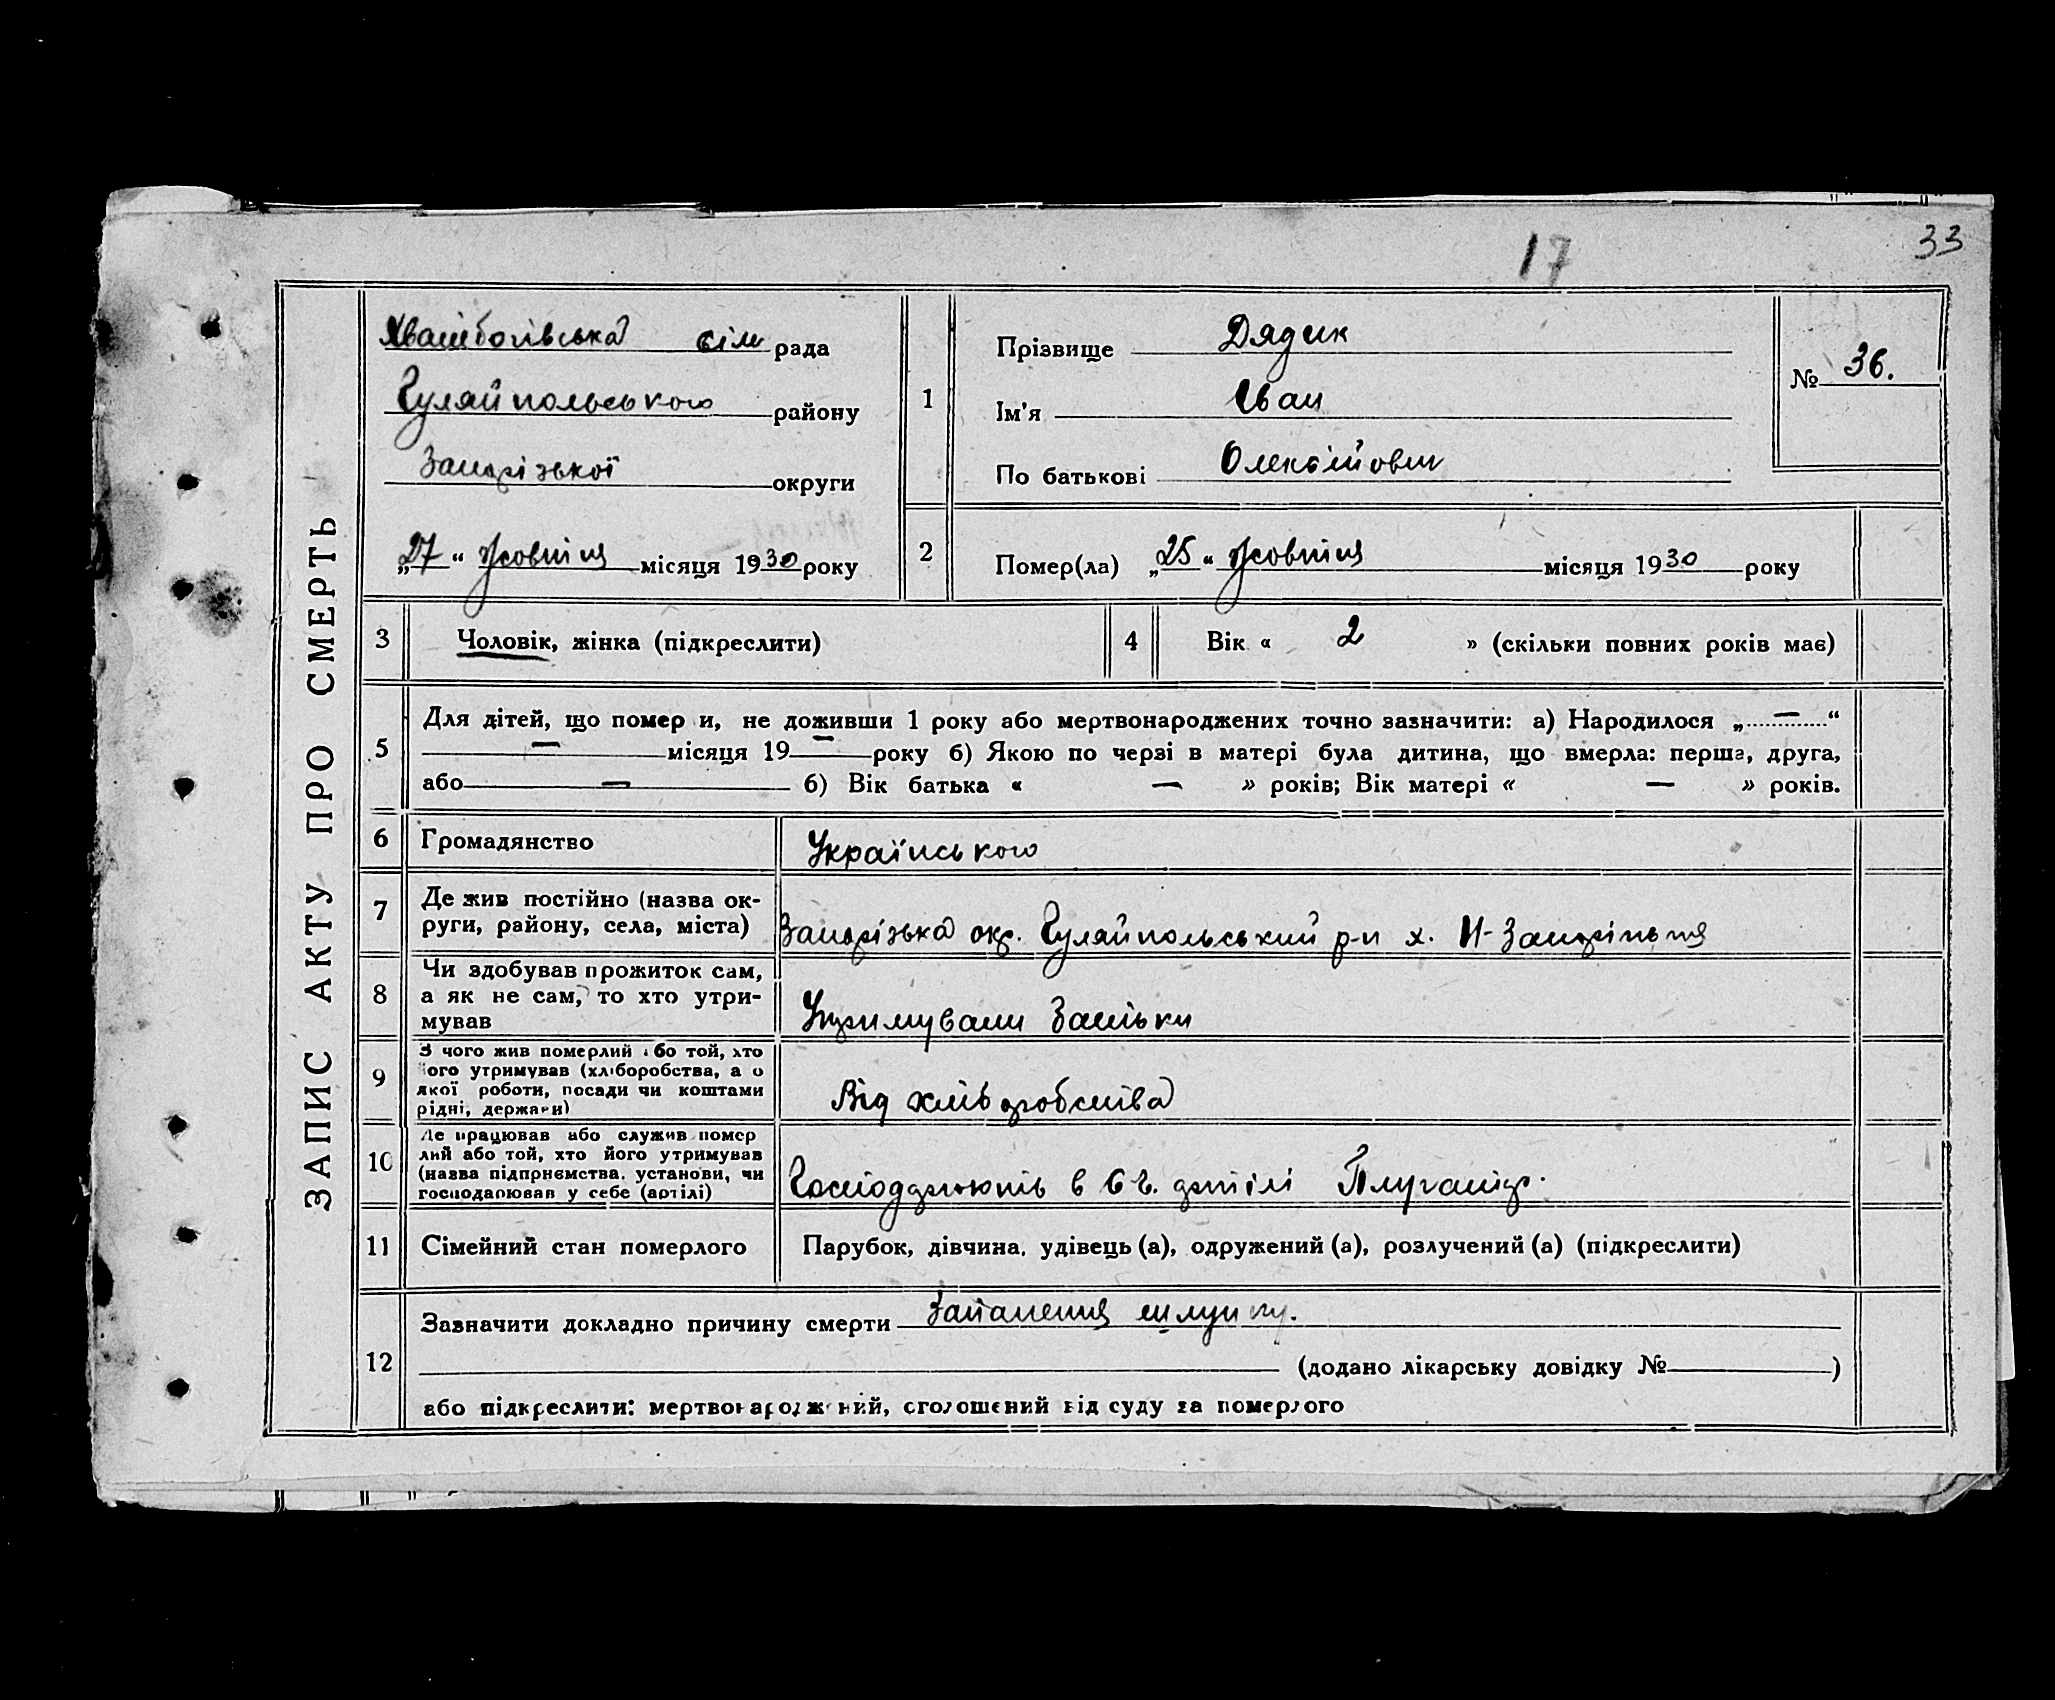 17
33
ЗАПИС АКТУ ПРО СМЕРТЬ
сіль рада
Гуляйпольського району
Запорізької округи
„27“ Жовтня місяця 1930 року
1
Прізвище Дядик
Ім'я Іван
По батькові Олексійович
№ 36.
2
Помер(ла) „25“ Жовтня місяця 1930 року
3
Чоловік, жінка (підкреслити)
4
Вік « 2 » (скільки повних років має)
5
Для дітей, що помер и, не доживши 1 року або мертвонароджених точно зазначити: а) Народилося „ — “
— місяця 19 — року б) Якою по черзі в матері була дитина, що вмерла: перша, друга,
або — б) Вік батька « — » років; Вік матері « — » років.
6
Громадянство
Українського
7
Де жив постійно (назва ок-
руги, району, села, міста)
Запорізька окр. Гуляйпольський р-н х. Н-Запоріжжя
8
Чи здобував прожиток сам,
а як не сам, то хто утри-
мував
Утримували Батьки
9
З чого жив померлий або той, хто
його утримував (хліборобства, а о
якої роботи, посади чи коштами
рідні, держави)
Від хліборобства
10
Де працював або служив помер
лий або той, хто його утримував
(назва підприємства, установи, чи
господарював у себе (артілі)
в С Г. артілі
11
Сімейний стан померлого
Парубок, дівчина, удівець (а), одружений (а), розлучений (а) (підкреслити)
12
Зазначити докладно причину смерти Запалення шлунку.
(додано лікарську довідку № )
або підкреслити: мертвонароджений, оголошений від суду за померлого